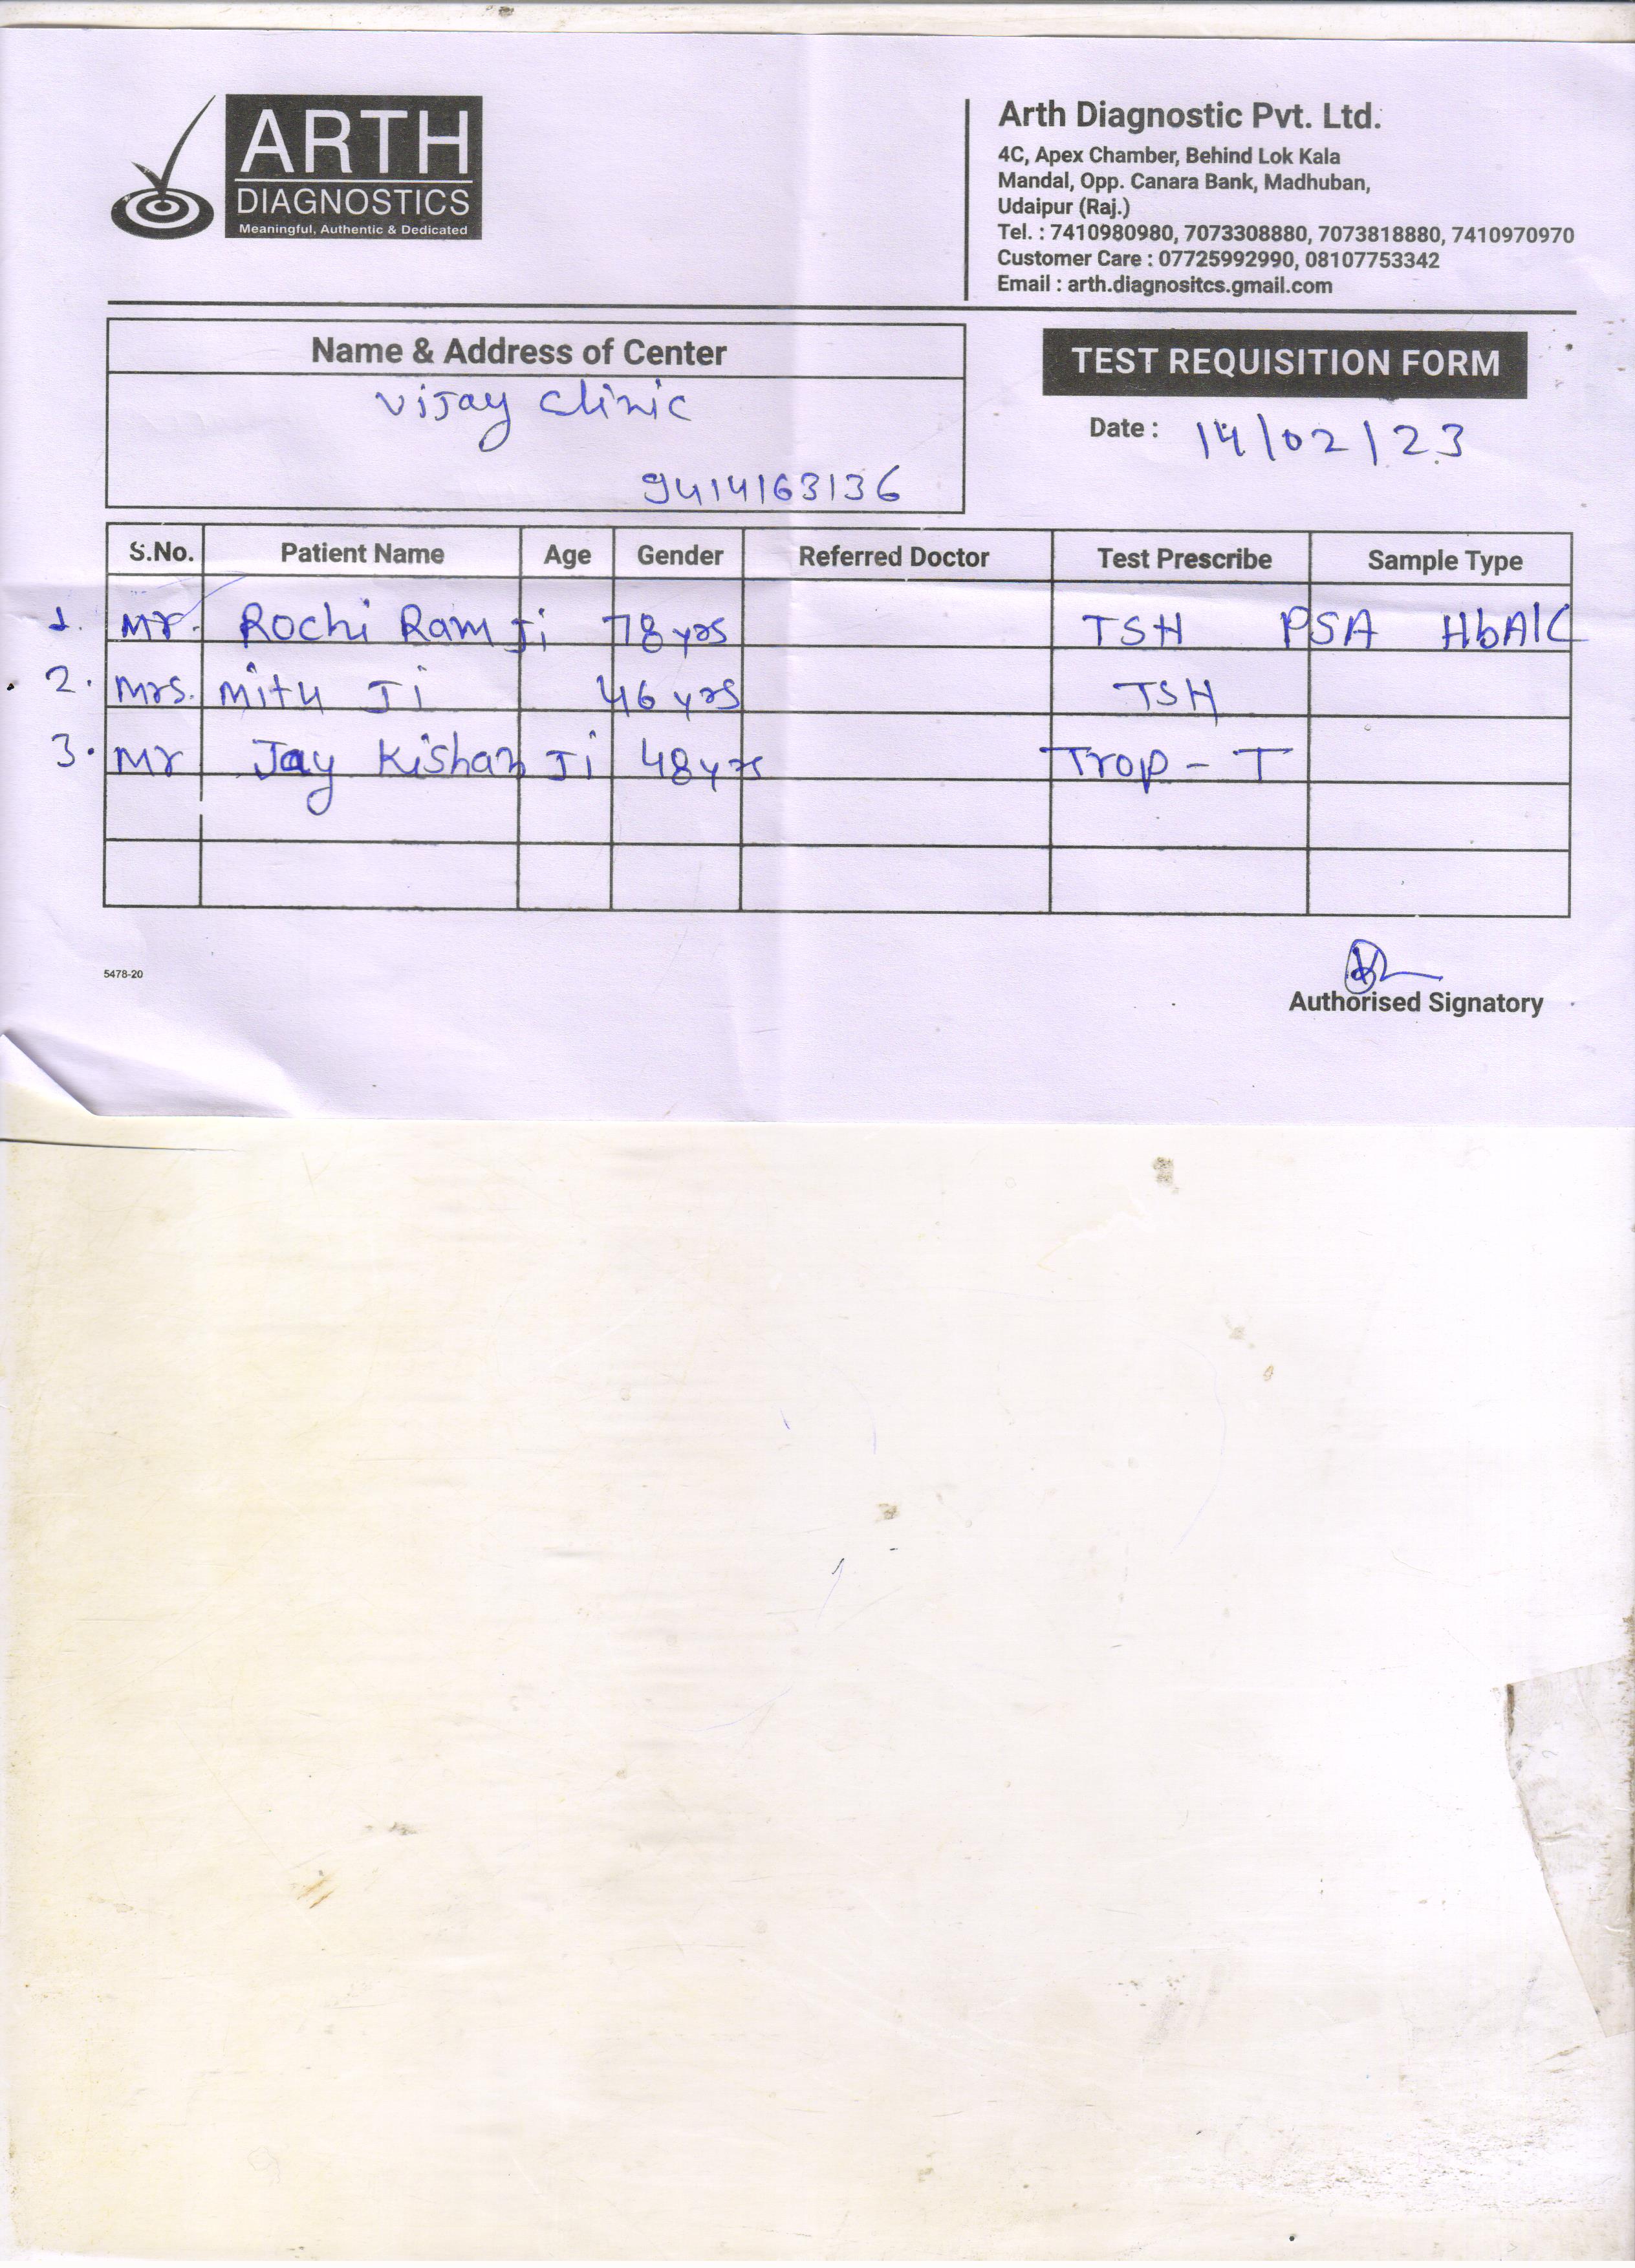 ARTH
DIAGNOSTICS
Meaningful, Authentic & Dedicated
Arth Diagnostic Pvt. Ltd.
4C, Apex Chamber, Behind Lok Kala
Mandal, Opp. Canara Bank, Madhuban,
Udaipur (Raj.)
Tel. : 7410980980, 7073308880, 7073818880, 7410970970
Customer Care : 07725992990, 08107753342
Email : arth.diagnositcs.gmail.com
Name & Address of Center
Vijay Clinic
9414163136
TEST REQUISITION FORM
Date : 14/02/23
S.No. Patient Name Age Gender Referred Doctor Test Prescribe Sample Type
1. Mr. Rochi Ram Ji 78 yrs TSH PSA HbA1C
2. Mrs. Mitu Ji 46 yrs TSH
3. Mr Jay Kishan Ji 48 yrs Trop - T
5478-20
Authorised Signatory